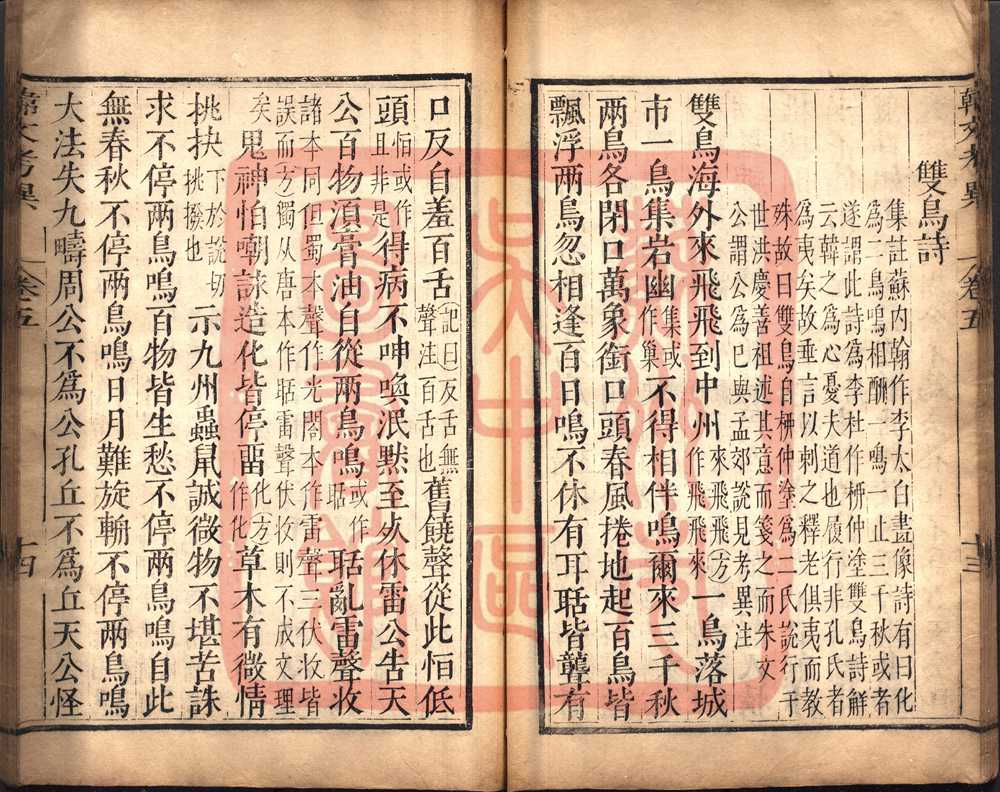 韓文考異 卷五 十三
雙鳥詩
集註蘇內翰作李太白畫像詩有曰化
為二鳥鳴相酬一鳴一止三千秋或者
遂謂此詩為李杜作柳仲塗雙鳥詩解
云韓之為心憂夫道也履行非孔氏者
為夷矣故垂言以刺之釋老俱夷而教
殊故曰雙鳥自柳仲塗為二氏說行于
世洪慶善祖述其意而箋之而朱文
公謂公為已與孟郊說見考異注
雙鳥海外來飛飛到中州來飛飛方作飛飛來一鳥落城
市一鳥集岩幽集或作巢不得相伴鳴爾來三千秋
兩鳥各閉口萬象銜口頭春風捲地起百鳥皆
飄浮兩鳥忽相逢百日鳴不休有耳聒皆聾有
口反自羞百舌記曰反舌無聲注百舌也舊饒聲從此恒低
頭恒或作且非是得病不呻喚泯默至死休雷公告天
公百物須膏油自從兩鳥鳴或作聒聒亂雷聲收
諸本同但蜀本聲作光閣本作雷聲三伏收皆
誤而方獨从唐本作聒雷聲伏收則不成文理
矣鬼神怕嘲詠造化皆停畱化方作化草木有微情
挑抉下於說切挑撥也示九州蟲鼠誠微物不堪苦誅
求不停兩鳥鳴百物皆生愁不停兩鳥鳴自此
無春秋不停兩鳥鳴日月難旋輈不停兩鳥鳴
大法失九疇周公不為公孔丘不為丘天公怪
韓文考異 卷五 十四